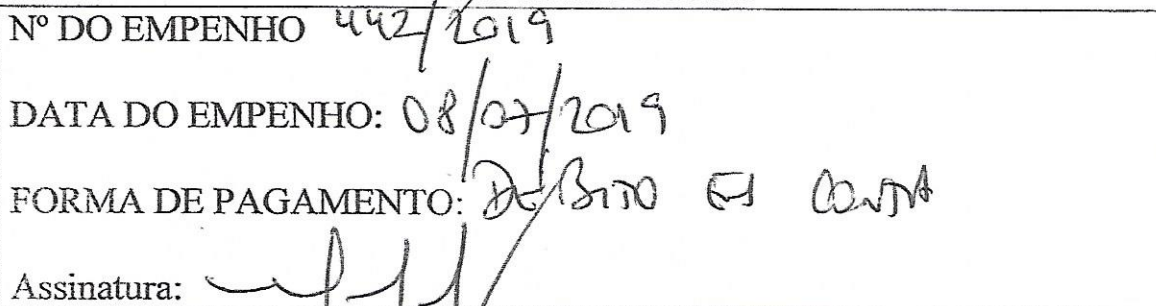 Nº DO EMPENHO 442/2019
DATA DO EMPENHO: 08/07/2019
FORMA DE PAGAMENTO: DÉBITO EM CONTA
Assinatura: